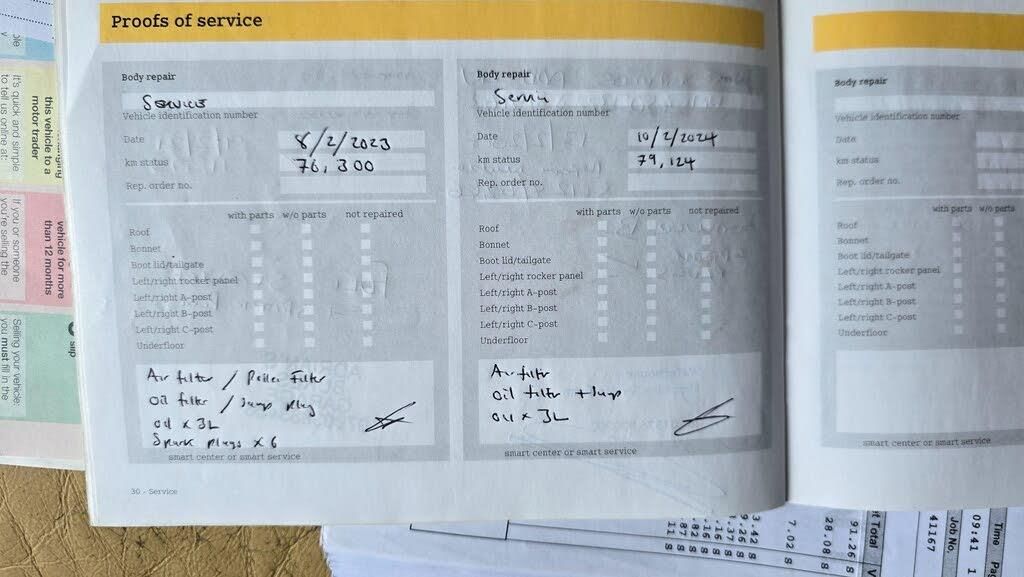 Proofs of service
Body repair
Service
Vehicle identification number
Date 8/2/2023
km status 76,300
Rep. order no.
with parts w/o parts not repaired
Roof
Bonnet
Boot lid/tailgate
Left/right rocker panel
Left/right A-post
Left/right B-post
Left/right C-post
Underfloor
Air filter / Pollen Filter
Oil filter / Sump plug
Oil x 3L
Spark plugs x 6
smart center or smart service
30 - Service
Body repair
Vehicle identification number
Date 10/2/2024
km status 79,124
Rep. order no.
with parts w/o parts not repaired
Roof
Bonnet
Boot lid/tailgate
Left/right rocker panel
Left/right A-post
Left/right B-post
Left/right C-post
Underfloor
Air filter
Oil filter + Sump
Oil x 3L
smart center or smart service
Body repair
Vehicle identification number
Date
km status
Rep. order no.
with parts w/o parts
Roof
Bonnet
Boot lid/tailgate
Left/right rocker panel
Left/right A-post
Left/right B-post
Left/right C-post
Underfloor
smart center or smart service
this vehicle to a
motor trader
It's quick and simple
to tell us online at:
vehicle for more
than 12 months
If you or someone
you're selling the
slip
Selling your vehicle:
you must fill in the
Time
09:41
Job No.
41167
Total
91.26 S
28.08 S
7.02 S